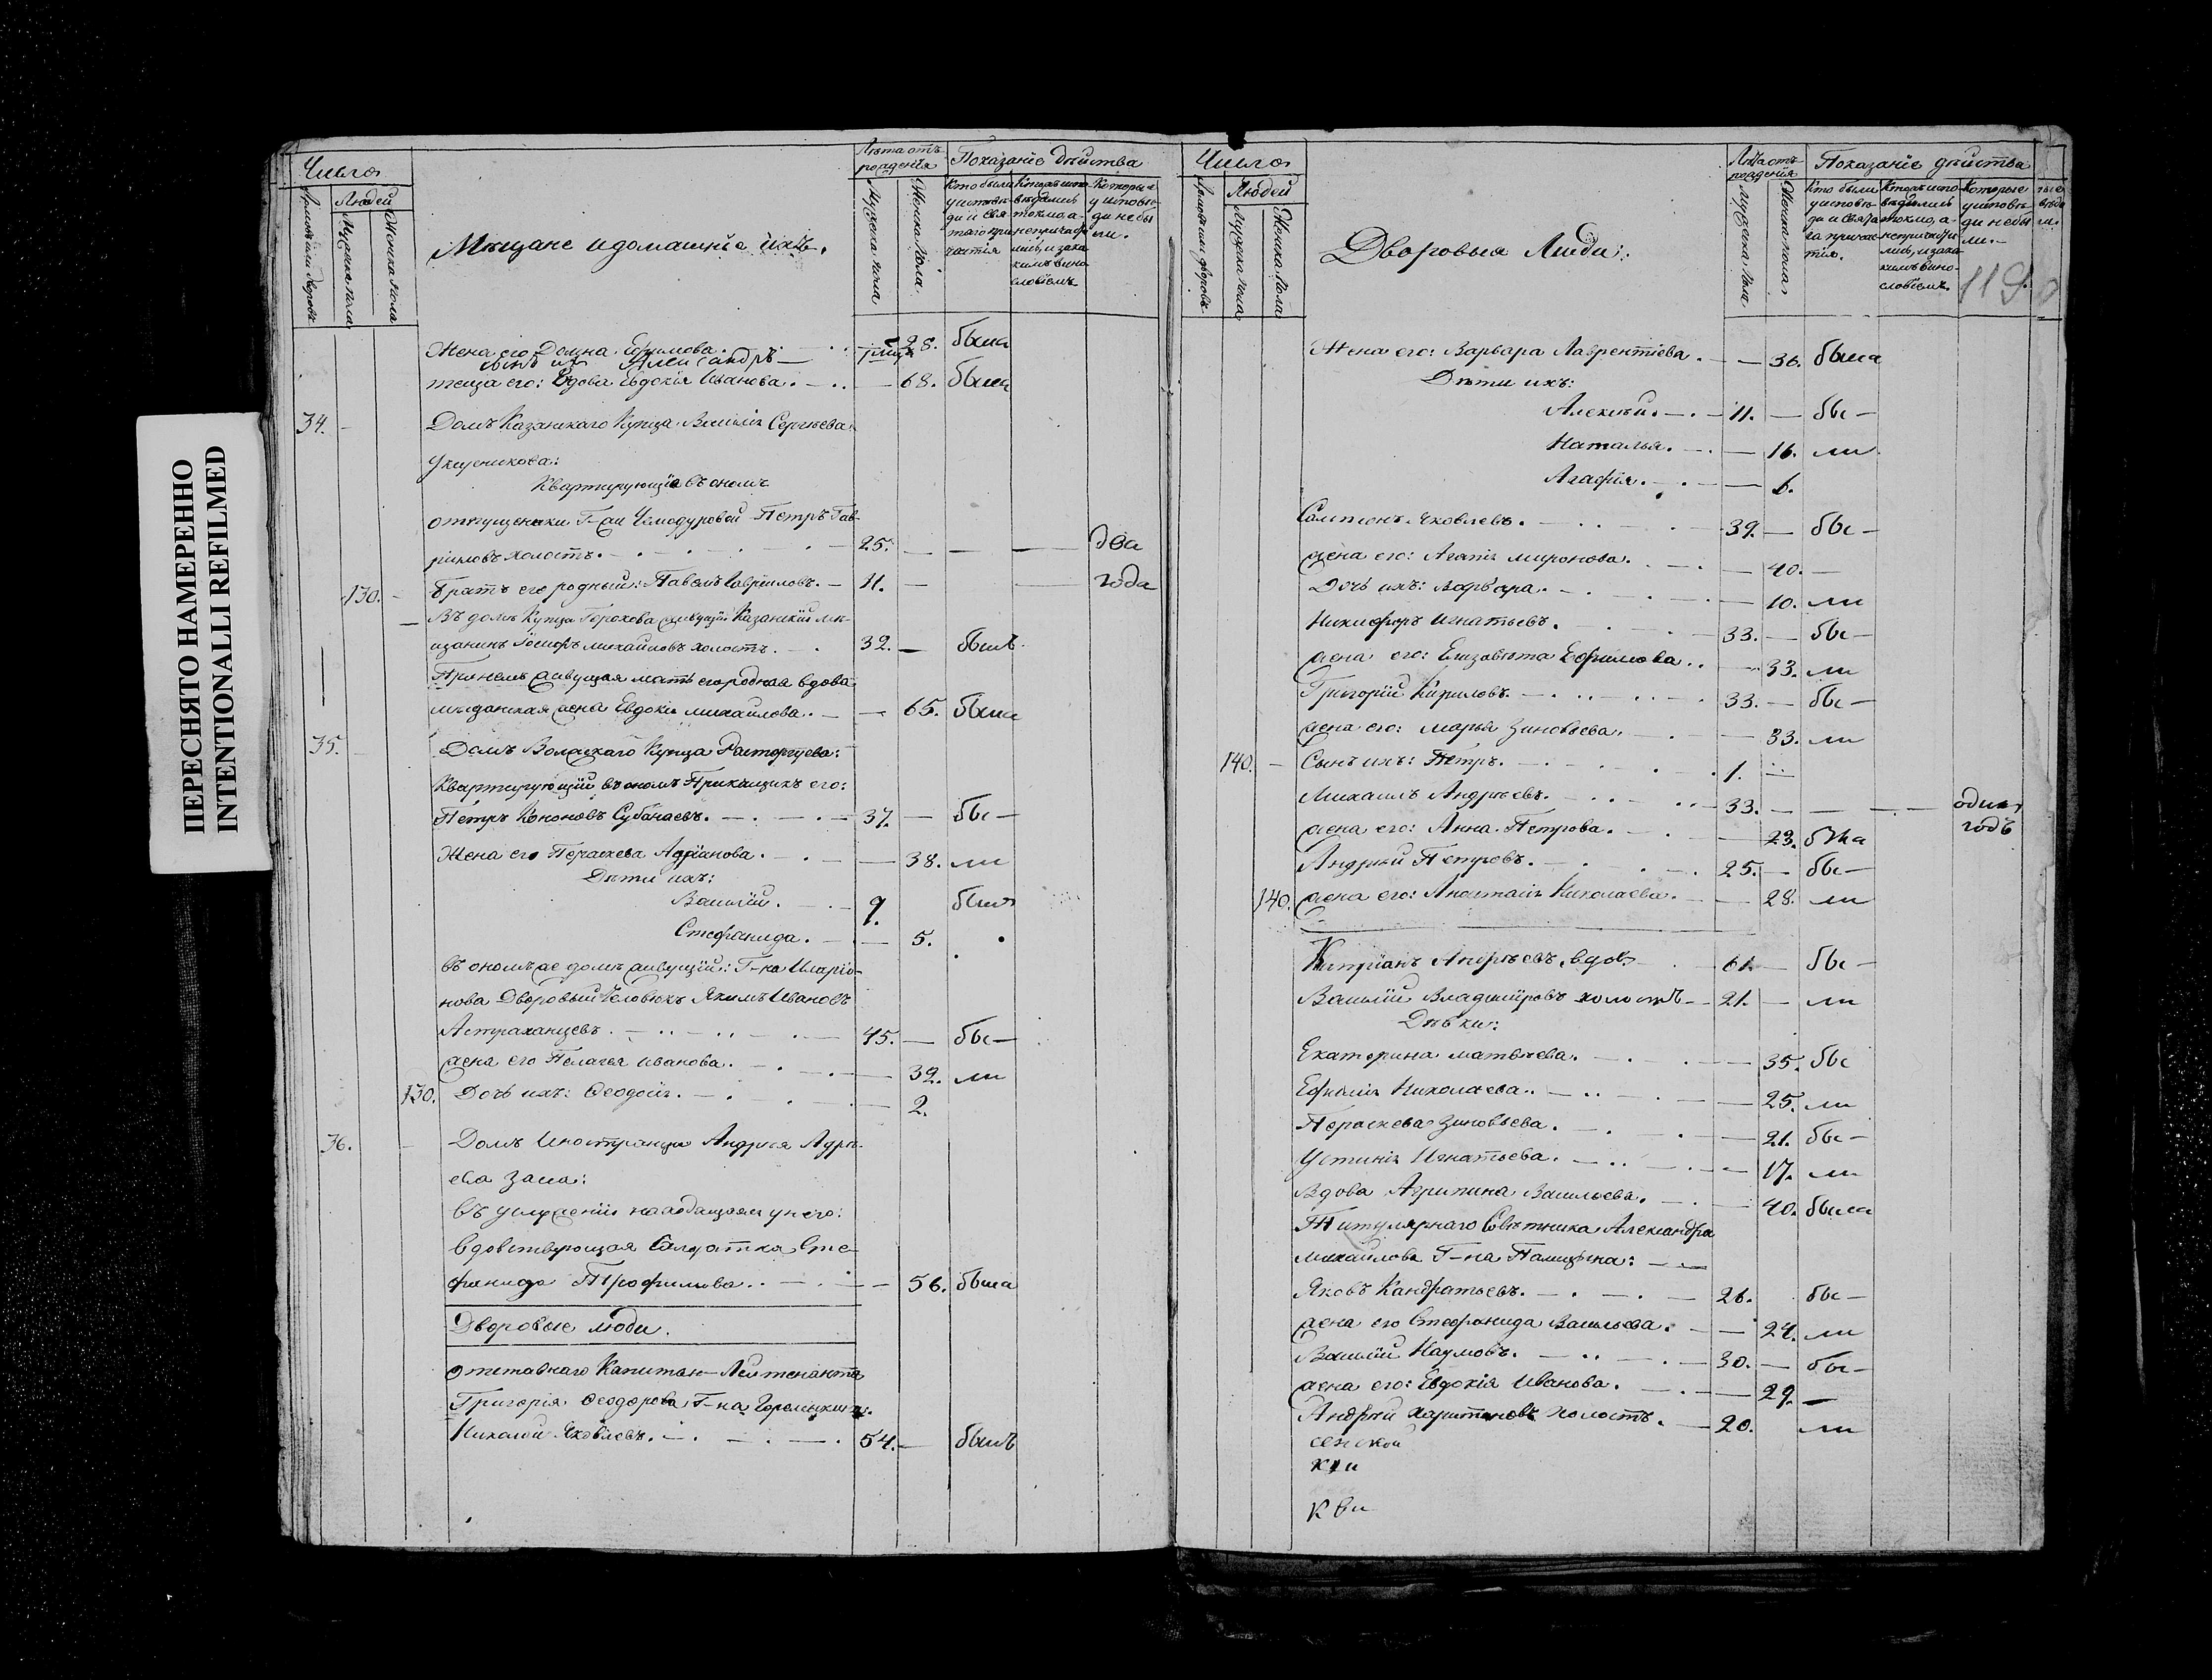 ПЕРЕСНЯТО НАМЕРЕННО
INTENTIONALLI REFILMED
Число
Людей
Мужеска пола
Женска пола
Мѣщане и домашніе ихъ.
Лѣта отъ рожденія
Мужеска пола
Женска пола
Показаніе дѣйства
Кто были у исповѣди и свята
Которые у исповѣди не были.
Жена его Домна Ефимова. 28. была
сынъ их Александръ
теща его: вдова Евдокія Иванова. 68. была
34. Домъ Казанскаго Купца Василія Сергѣева
Квартирующіе въ ономъ
отпущеники Г-жи Чемодуровой Петръ Гав-
риловъ холостъ. 25. два
130. братъ его родный: Павелъ Гавриловъ. 11. года
Въ домѣ Купца Горохова живущій Казанскій мѣ-
щанинъ Іосифъ Михайловъ холостъ. 32. былъ
При немъ живущая мать его родная вдова
мѣщанская жена Евдокія Михайлова. 65. была
35. Домъ Волжскаго Купца Расторгуева:
Квартирующій въ ономъ Прикащикъ его:
Петръ Кононовъ Субанаевъ. 37. бы-
Жена его Параскева Адріанова. 38. ли
Дѣти ихъ:
Василій. 9. былъ
Стефанида. 5.
въ ономъ же домѣ живущій: Г-на Иларіо-
нова Дворовый Человѣкъ Якимъ Ивановъ
Астраханцевъ. 45. бы-
жена его Пелагея Иванова. 32. ли
130. Дочь ихъ: Ѳеодосія. 2.
36. Домъ Иностранца Андрея Андре-
ева
въ услуженіи находящаяся у него:
вдовствующая Солдатка Сте-
фанида Трофимова. 56. была
Дворовые люди.
отставнаго Капитан-Лейтенанта
Григорія Ѳеодорова Г-на
Николай Яковлевъ. 54. былъ
Число
Людей
Мужеска пола
Женска пола
Дворовыя Люди:
Лѣта отъ рожденія
Показаніе дѣйства
Которые у исповѣди не были.
119
Жена его: Варвара Лаврентіева. 36. была
Дѣти ихъ:
Алексѣй. 11. бы-
Наталья. 16. ли
Агафія. 6.
Сампсонъ Яковлевъ. 39. бы-
жена его: Агапія Миронова. 40.
Дочь ихъ: Варвара. 10. ли
Никифоръ Игнатьевъ. 33. бы-
жена его: Елизавета Ефимова. 33. ли
Григорій Кириловъ. 33. бы-
жена его: Марья Зиновьева. 33. ли
140. Сынъ ихъ: Петръ. 1.
Михаилъ Андреевъ. 33. одинъ
жена его: Анна Петрова. 23. была годъ
Андрей Петровъ. 25. бы-
140. жена его: Анастасія Николаева. 28. ли
Кипріанъ Андреевъ вдов 61. бы-
Василій Владиміровъ холостъ 21. ли
Дѣвки:
Екатерина Матвѣева. 35. бы
Ефимія Николаева. 25. ли
Параскева Зиновьева. 21. бы-
Устинія Игнатьева. 17. ли
Вдова Агрипина Васильева. 40. была
Титулярнаго Совѣтника Александра
Михайлова Г-на Палицына:
Яковъ Кандратьевъ. 26. бы-
жена его Стефанида Васильева. 24. ли
Василій Наумовъ. 30. бы-
жена его: Евдокія Иванова. 29.
Андрей Харитоновъ холостъ. 20. ли